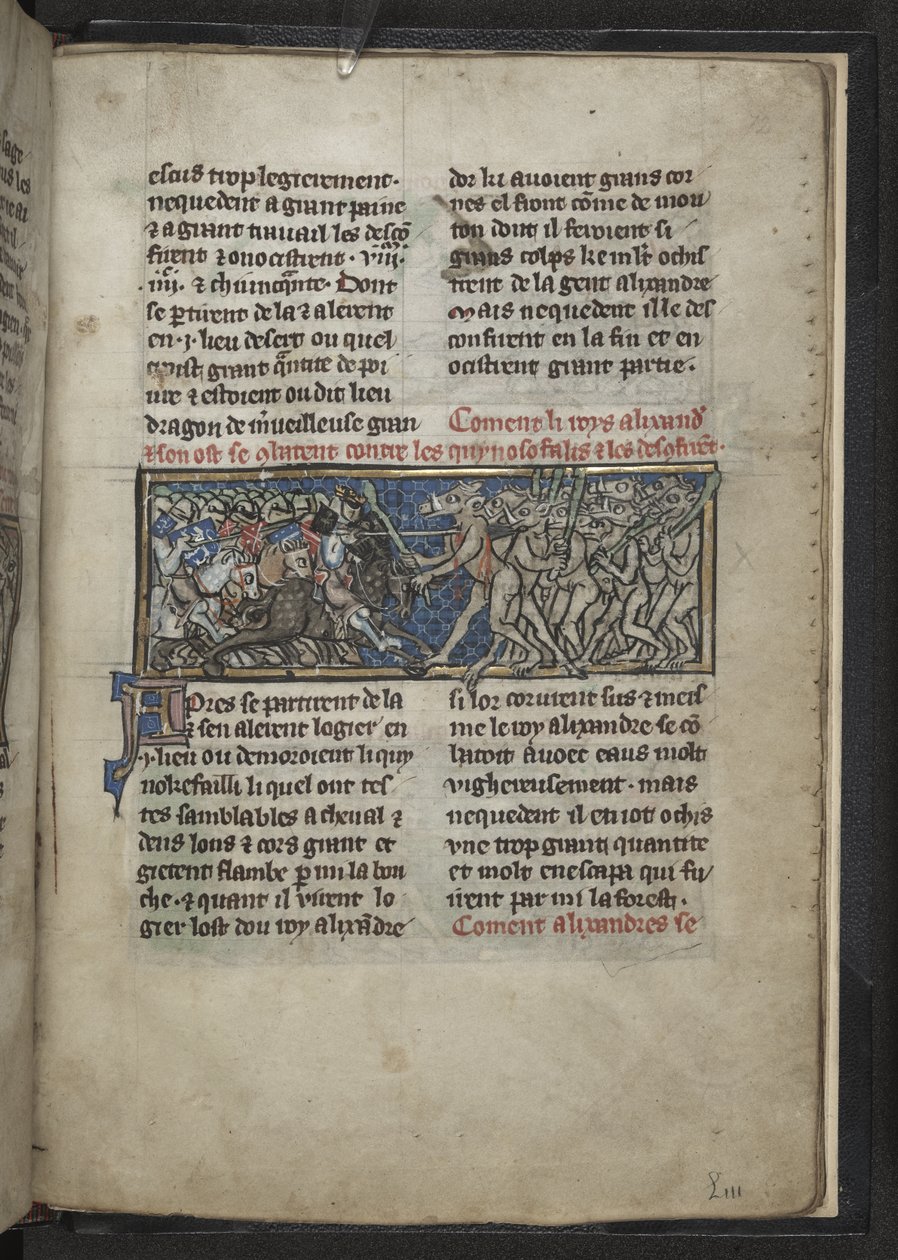 escus trop legierement.
nequedent a grant paine
⁊ a grant trauail les descō
firent ⁊ en ocistrent. viii.
.iiii. ⁊ chuincq̄nte. Dont
se ꝑtirent de la ⁊ alerent
en .i. lieu desert ou quel
croist grant q̄ntite de poi
ure ⁊ estoient ou dit lieu
dragon de m̄ueilleuse gran
dor ki auoient grans cor
nes el front cōme de mou
ton dont il feroient si
grans colps ke mlt ochis
trent de la gent alixandre
Mais nequedent il le des
confirent en la fin et en
ocistrent grant partie.
Coment li roys alixand̄
⁊ son ost se ꝯbatent contre les quynosofalis ⁊ les desꝯfirēt.
Apres se partirent de la
⁊ sen alerent logier en
.i. lieu ou demoroient li quy
nokefailli li quel ont tes
tes samblables a cheual ⁊
dens lons ⁊ cors grant et
gietent flambe ꝑ mi la bou
che. ⁊ quant il virent lo
gier lost dou roy alixādre
si lor corurent sus ⁊ meis
me le roy alixandre se cō
batoit auoec eaus molt
vighereusement. mais
nequedent il en iot ochis
vne trop grant quantite
et molt en escapa qui fu
irent par mi la forest.
Coment alixandres se